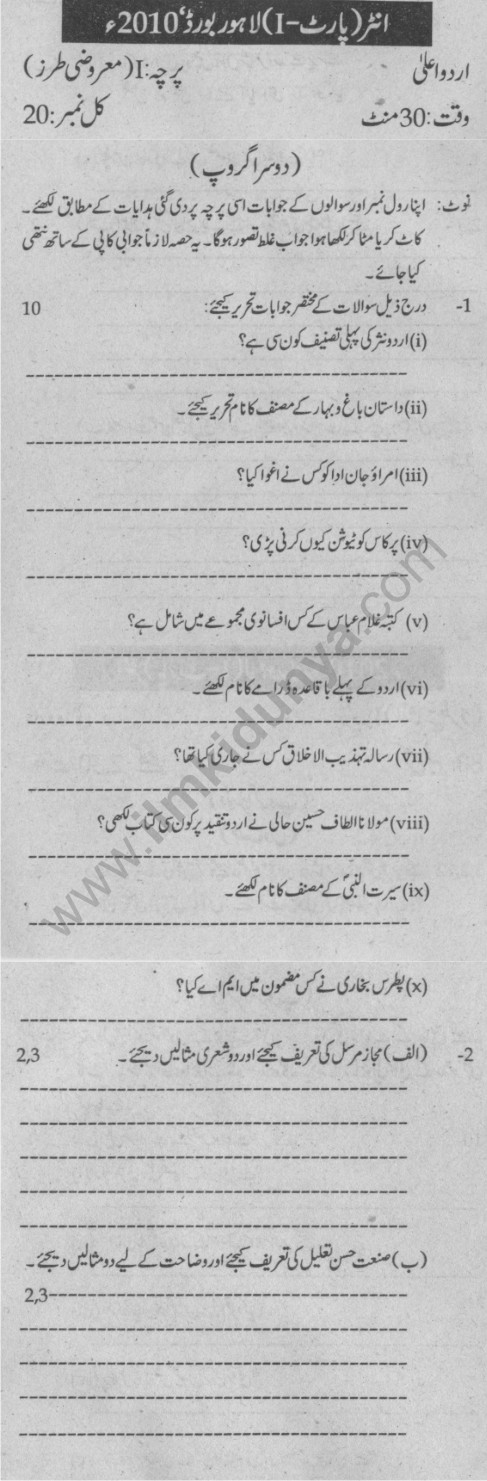 انٹر (پارٹ-I) لاہور بورڈ، 2010ء
اردو اعلیٰ پرچہ: I (معروضی طرز)
وقت: 30 منٹ کل نمبر: 20
(دوسرا گروپ)
نوٹ: اپنا رول نمبر اور سوالوں کے جوابات اسی پرچہ پر دی گئی ہدایات کے مطابق لکھئے۔
کاٹ کر یا مٹا کر لکھا ہوا جواب غلط تصور ہوگا۔ یہ حصہ لازماً جوابی کاپی کے ساتھ نتھی
کیا جائے۔
1- درج ذیل سوالات کے مختصر جوابات تحریر کیجئے: 10
(i) اردو نثر کی پہلی تصنیف کون سی ہے؟
(ii) داستان باغ و بہار کے مصنف کا نام تحریر کیجئے۔
(iii) امراؤ جان ادا کو کس نے اغوا کیا؟
(iv) پرکاس کو ٹیوشن کیوں کرنی پڑی؟
(v) کتبہ غلام عباس کے کس افسانوی مجموعے میں شامل ہے؟
(vi) اردو کے پہلے باقاعدہ ڈرامے کا نام لکھئے۔
(vii) رسالہ تہذیب الاخلاق کس نے جاری کیا تھا؟
(viii) مولانا الطاف حسین حالی نے اردو تنقید پر کون سی کتاب لکھی؟
(ix) سیرت النبیؐ کے مصنف کا نام لکھئے۔
(x) پطرس بخاری نے کس مضمون میں ایم اے کیا؟
2- (الف) مجاز مرسل کی تعریف کیجئے اور دو شعری مثالیں دیجئے۔ 2,3
(ب) صنعت حسن تعلیل کی تعریف کیجئے اور وضاحت کے لیے دو مثالیں دیجئے۔
2,3
www.ilmkidunya.com